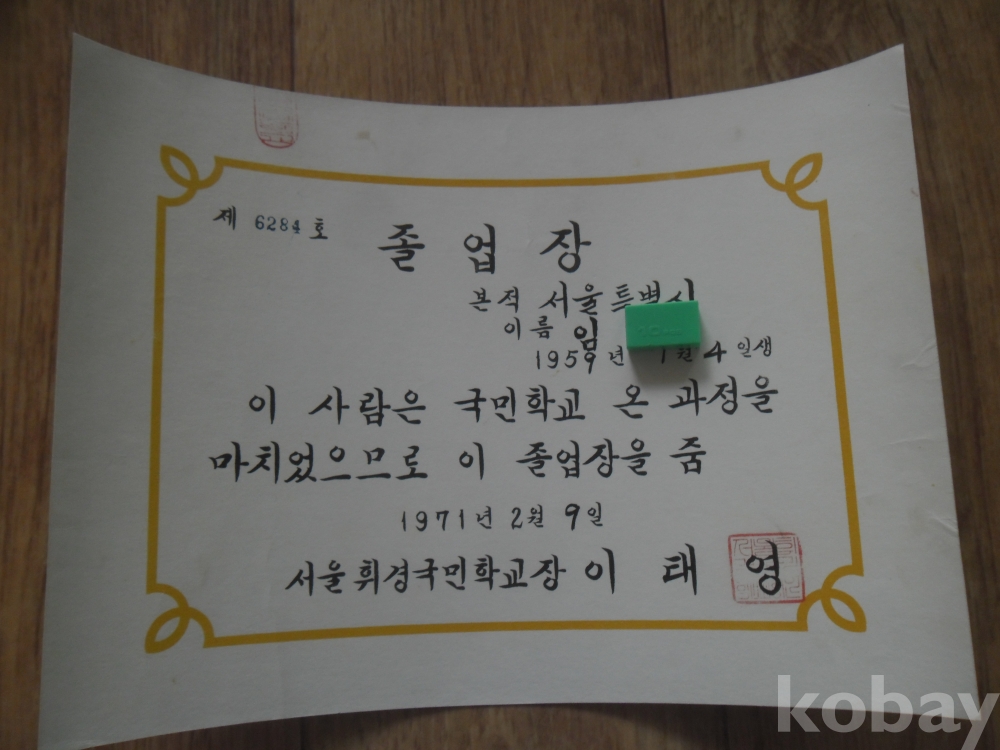 제 6284 호
졸업장
본적 서울특별시
이름 임
1959년 1월 4일생
이 사람은 국민학교 온 과정을
마치었으므로 이 졸업장을 줌
1971년 2월 9일
서울휘경국민학교장 이태영
kobay